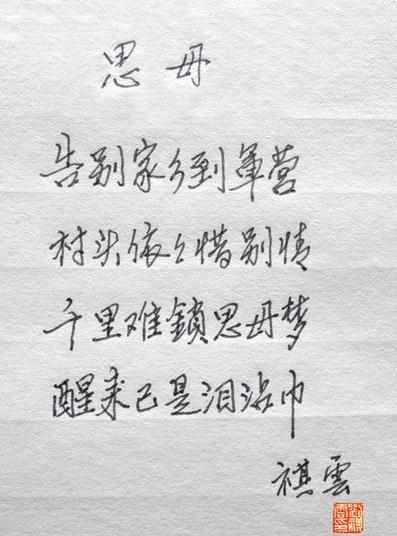 思母
告别家乡到军营
村头依々惜别情
千里难鎖思母梦
醒来已是泪沾巾
祺雲